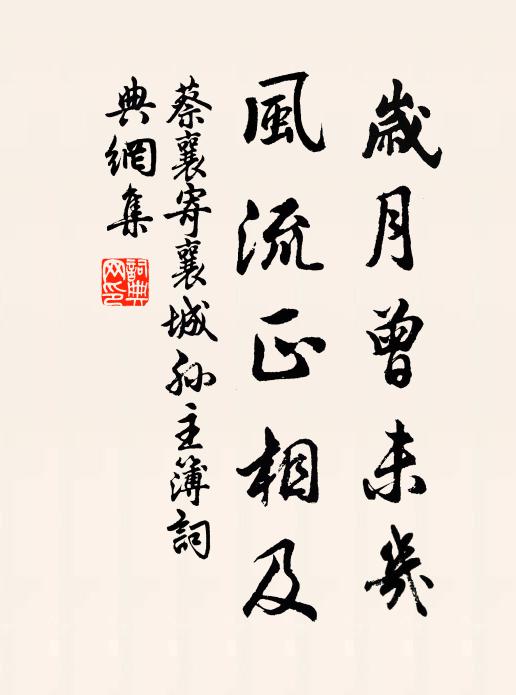 歲月曾未幾
風流正相及
蔡襄寄襄城孙主簿詞
典網集
詞典网印